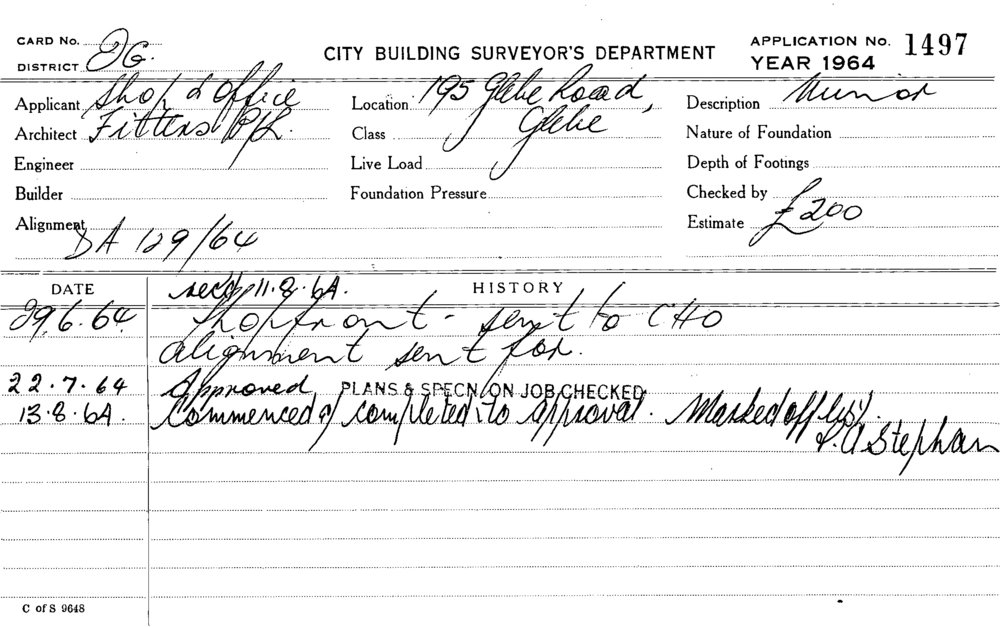 CARD No. OG. CITY BUILDING SURVEYOR'S DEPARTMENT APPLICATION No. 1497
DISTRICT YEAR 1964
Applicant Shop & Office Location 195 Glebe Road, Description Minor
Architect Fitters P/L. Class Glebe Nature of Foundation
Engineer Live Load Depth of Footings
Builder Foundation Pressure Checked by
Alignment Estimate £200
DA 129/64
DATE 11.8.64. HISTORY
29.6.64 Shopfront - sent to CHO
alignment sent for.
22.7.64 Approved PLANS & SPECN. ON JOB CHECKED
13.8.64. Commenced & completed to approval. Marked off list.
Stephan
C of S 9648